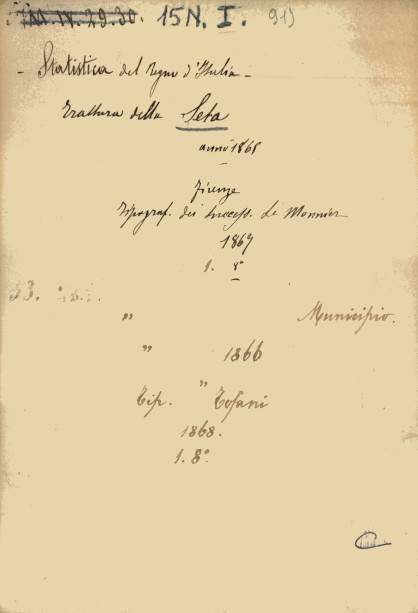 15N. I. 91)
- Statistica del regno d'Italia -
Trattura della Seta
anno 1865
Firenze
Tipograf. dei success. Le Monnier
1867
1. 8º
53.
" Municipio.
" 1866
Tip. " Tofani
1868.
1. 8º.